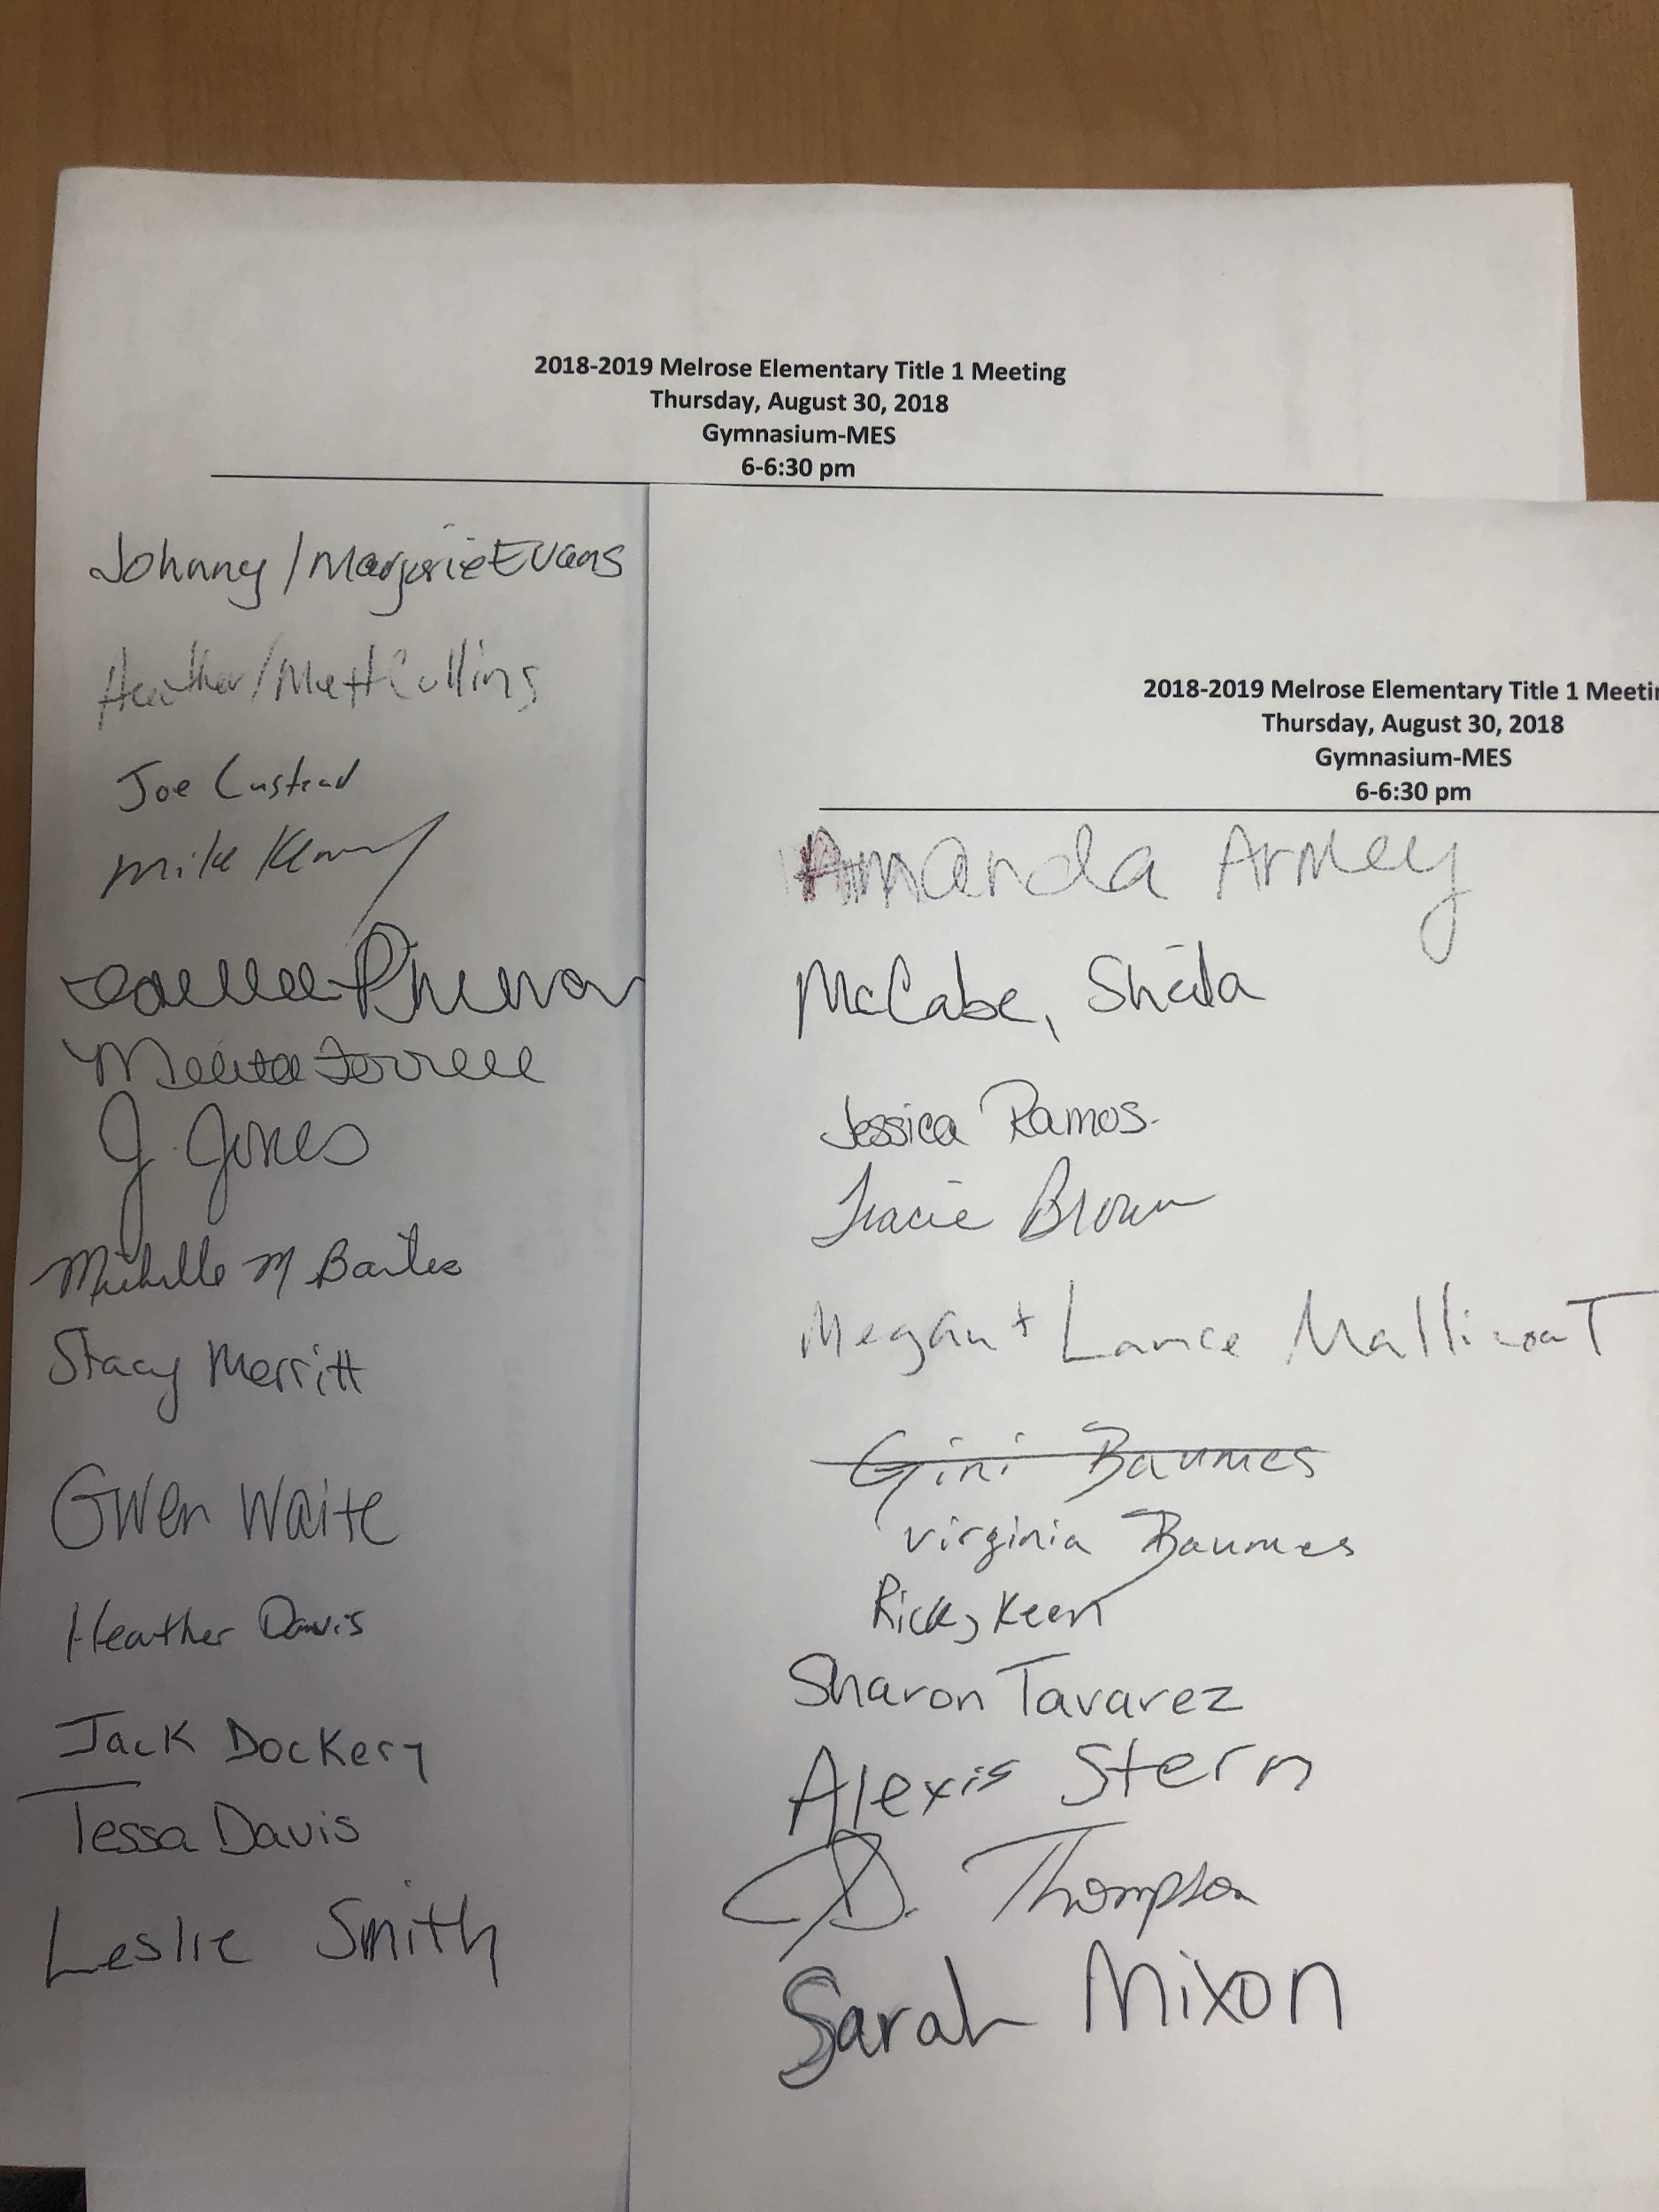 2018-2019 Melrose Elementary Title 1 Meeting
Thursday, August 30, 2018
Gymnasium-MES
6-6:30 pm
Johnny / Marjorie Evans
Heather / Matt Collins
Joe Custead
Mike
J. Jones
Michelle M
Stacy Merritt
Gwen Waite
Heather Davis
Jack Dockery
Tessa Davis
Leslie Smith
2018-2019 Melrose Elementary Title 1 Meetin
Thursday, August 30, 2018
Gymnasium-MES
6-6:30 pm
Amanda Armey
McCabe, Sheila
Jessica Ramos
Tracie Brown
Megan + Lance Mallicoat
Gini Baumes
Virginia Baumes
Ricky Keen
Sharon Tavarez
Alexis Stern
D. Thompson
Sarah Mixon